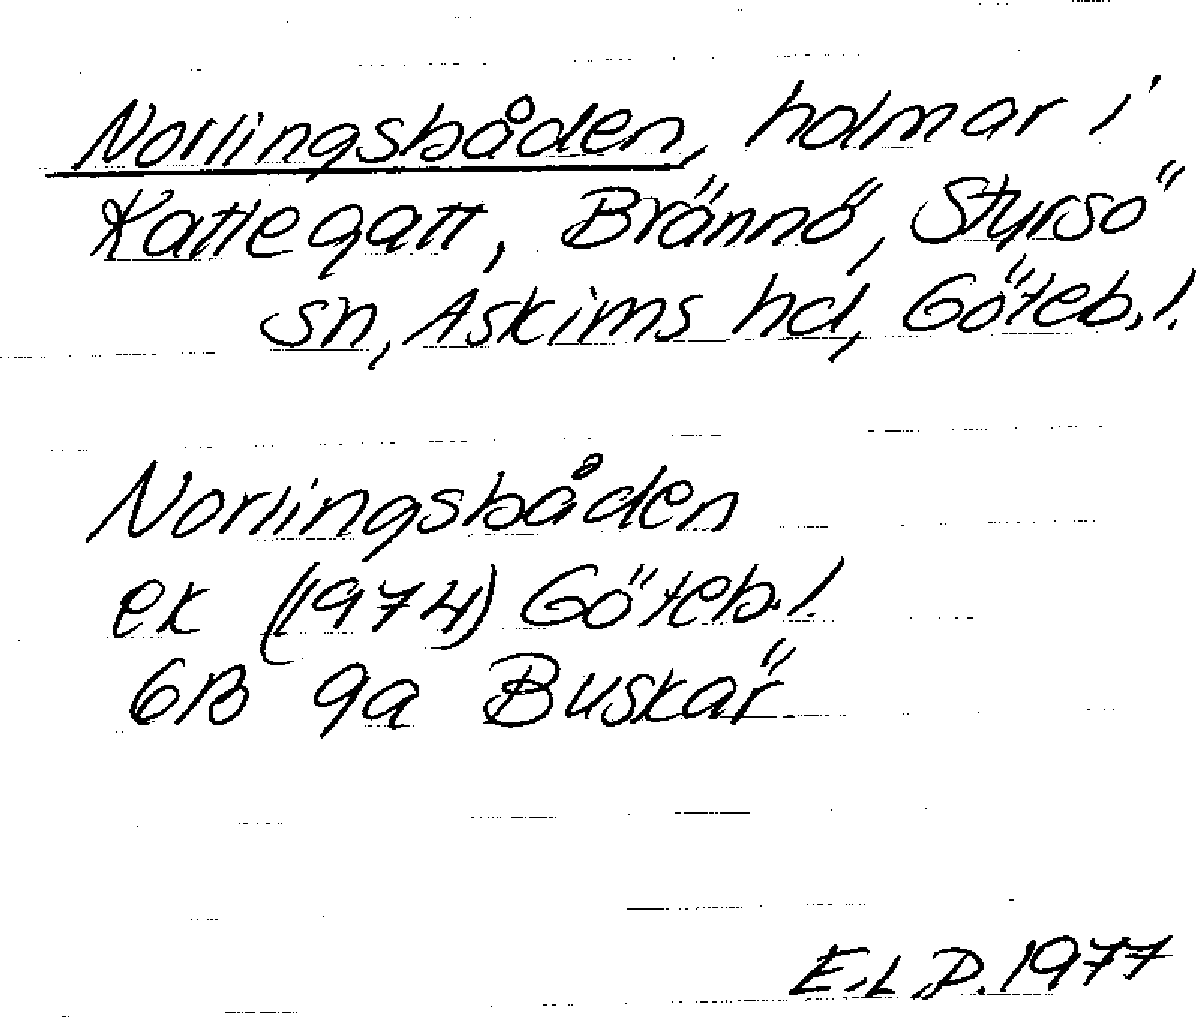 Norlingsbåden, holmar i
Kattegatt, Brännö, Styrsö
sn, Askims hd, Göteb.l.
Norlingsbåden
ek (1974) Göteb.l.
6B 9a Buskär
E.L.D. 1977